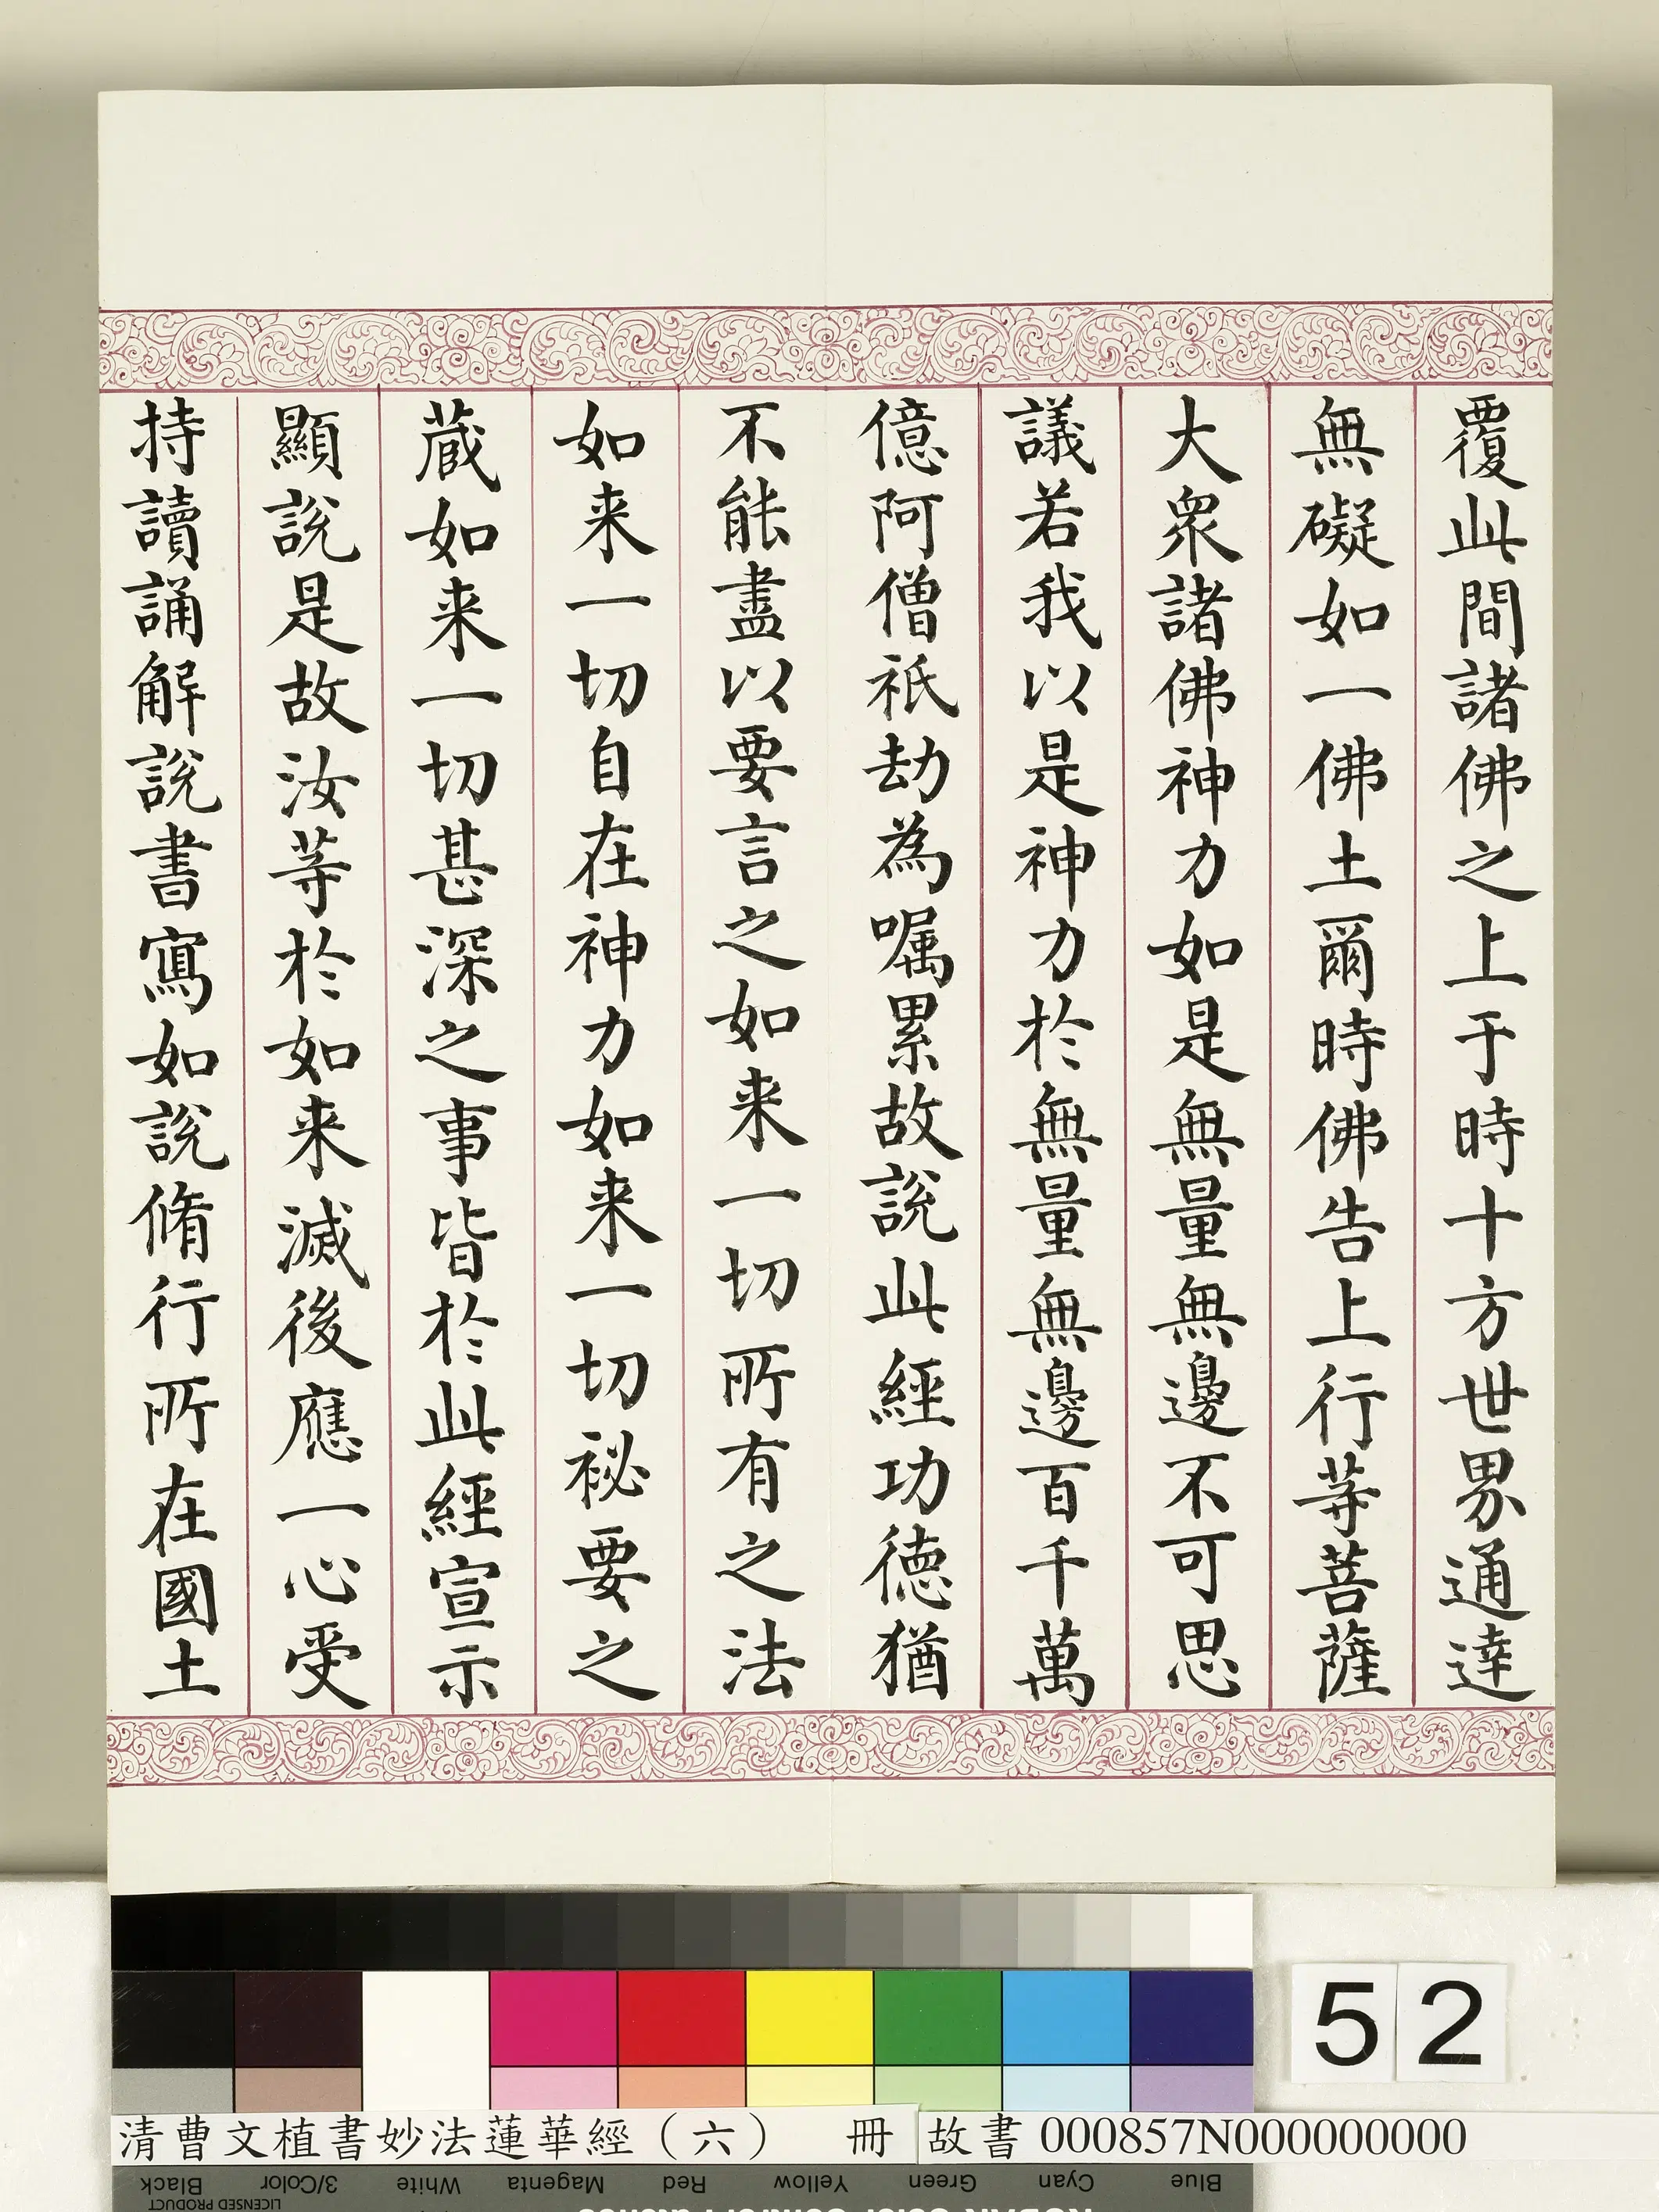 覆此間諸佛之上于時十方世界通達
無礙如一佛土爾時佛告上行等菩薩
大衆諸佛神力如是無量無邊不可思
議若我以是神力於無量無邊百千萬
億阿僧祇劫為囑累故說此經功德猶
不能盡以要言之如来一切所有之法
如来一切自在神力如来一切祕要之
蔵如来一切甚深之事皆於此經宣示
顯說是故汝等於如来滅後應一心受
持讀誦解說書寫如說脩行所在國土
52
清曹文植書妙法蓮華經（六） 冊 故書000857N000000000
Black 3/Color White Magenta Red Yellow Green Cyan Blue
LICENSED PRODUCT